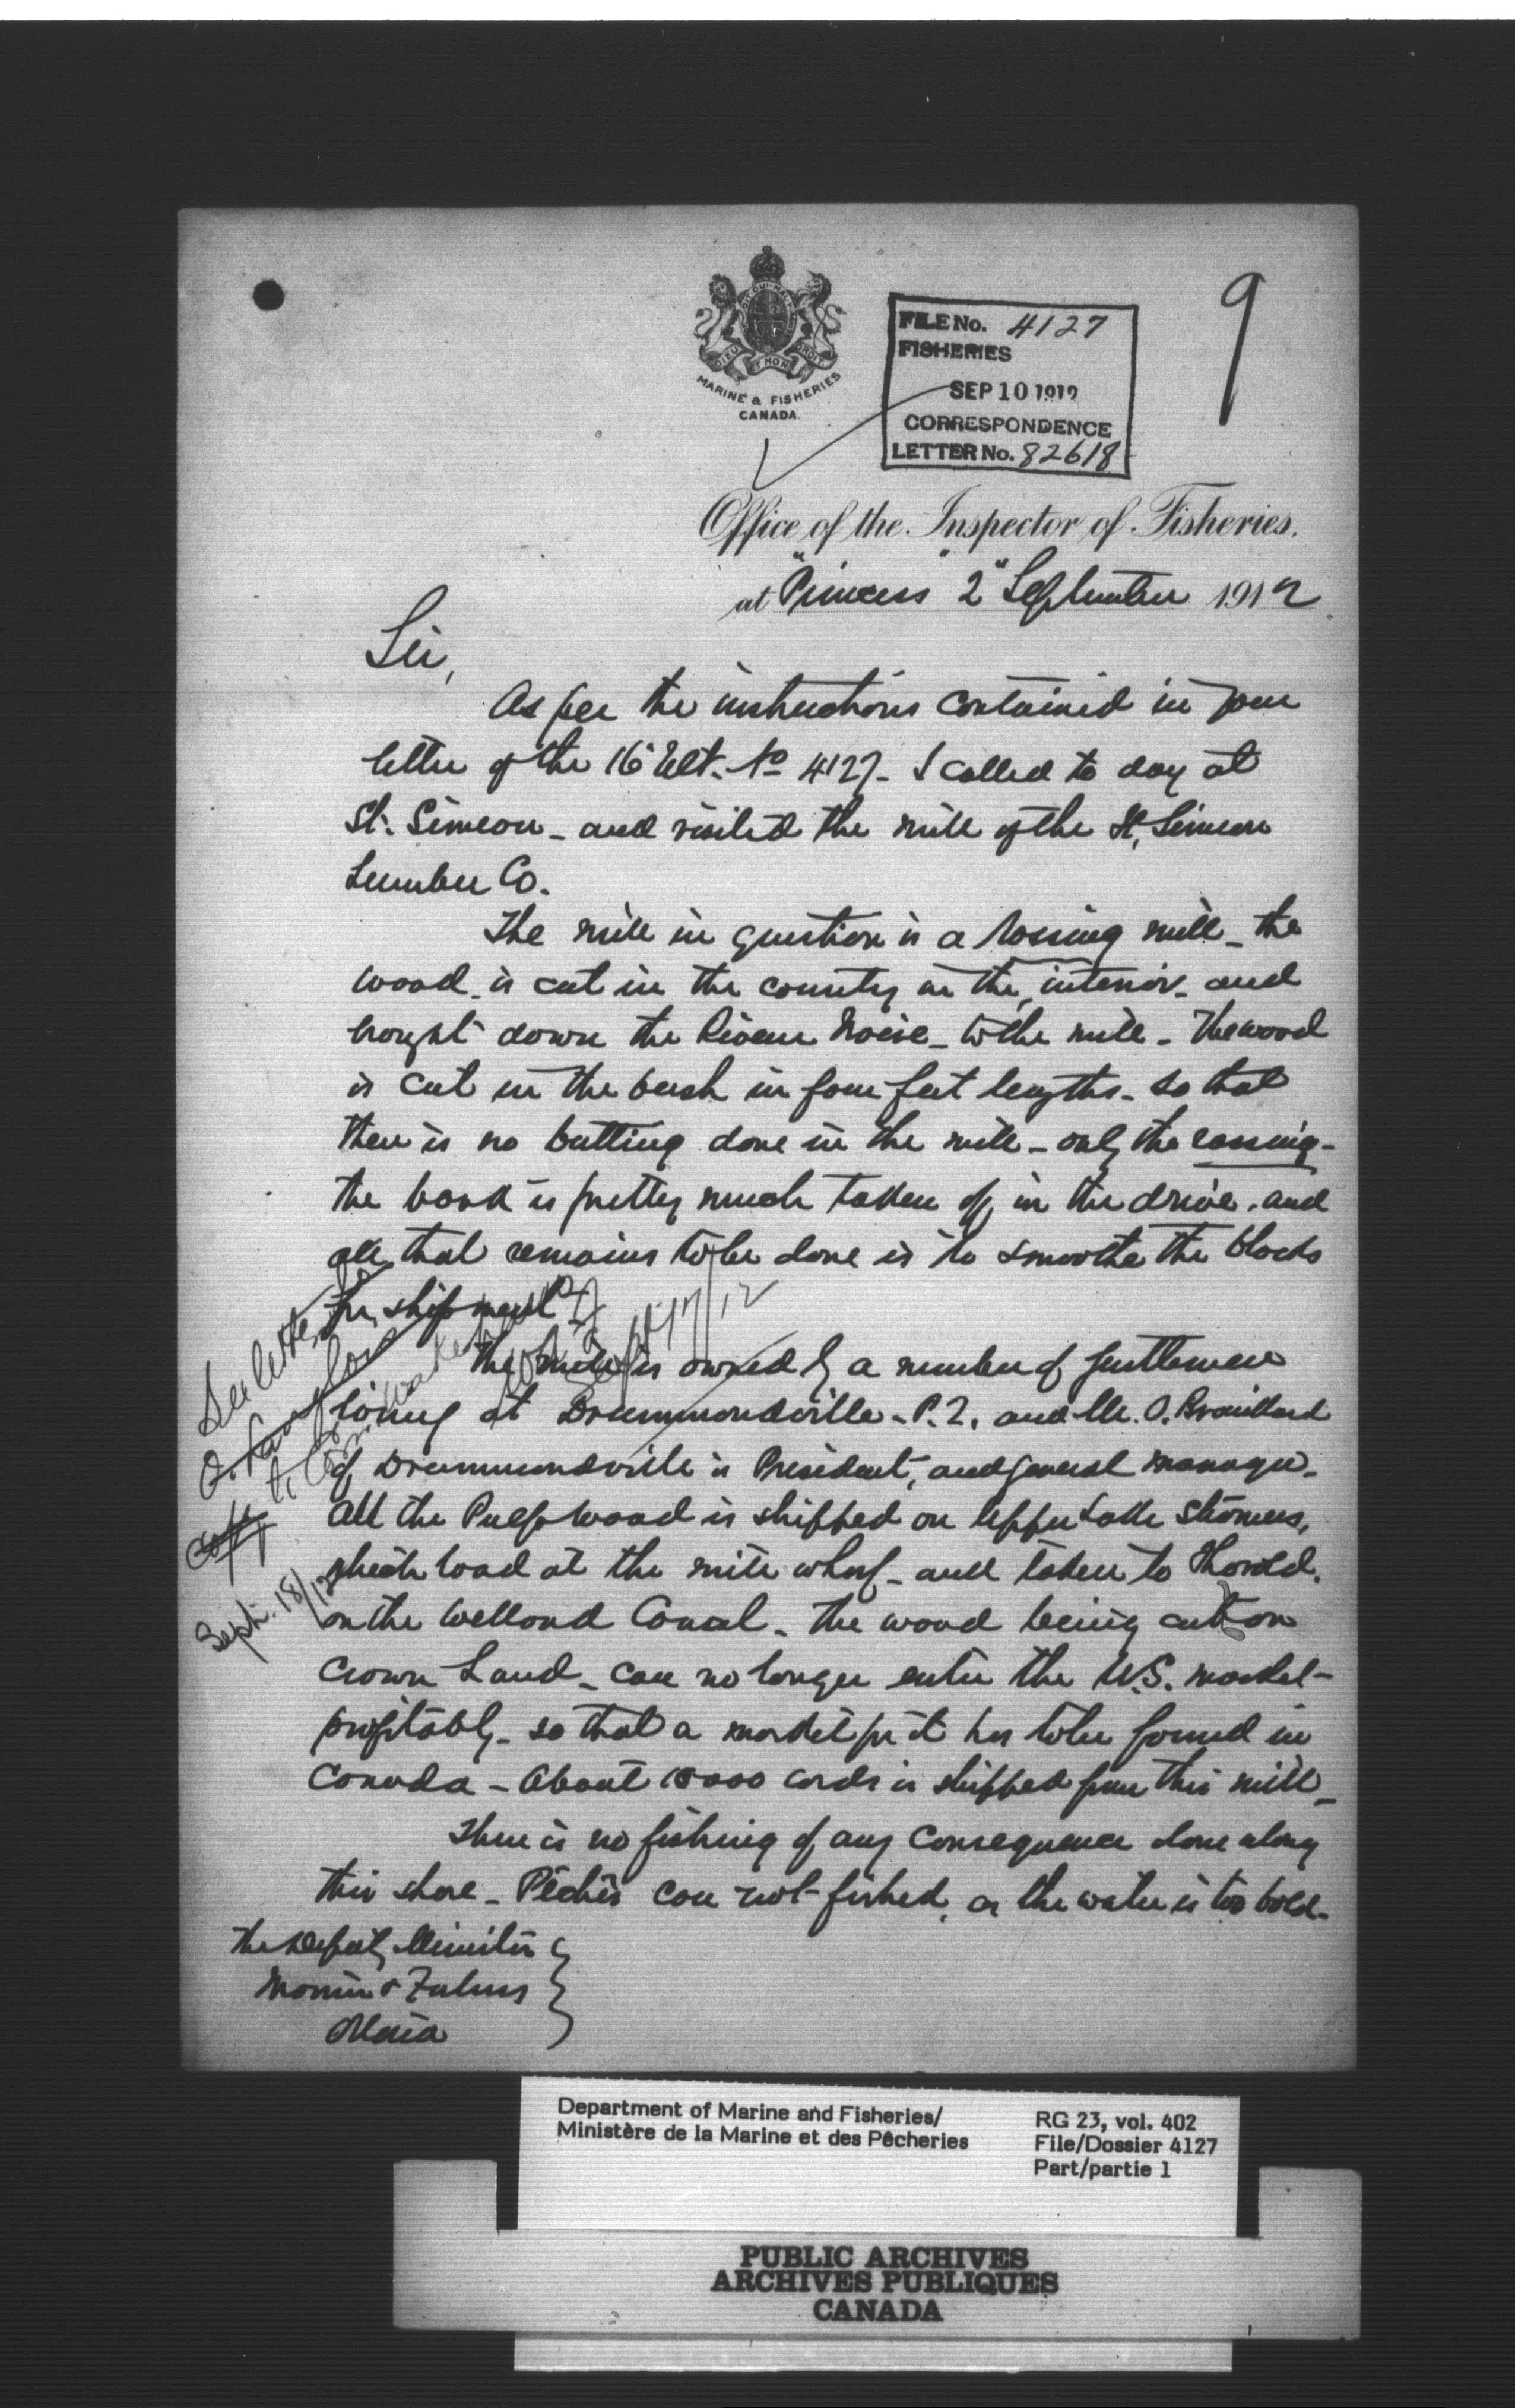 9
DIEU ET MON DROIT
MARINE & FISHERIES
CANADA.
FILE No. 4127
FISHERIES
SEP 10 1912
CORRESPONDENCE
LETTER No. 82618
Office of the Inspector of Fisheries.
at "Princess" 2" September 1912
Sir,
As per the instructions contained in your
letter of the 16" Ult. No 4127 - I called to day at
St. Simeon - and visited the mill of the St, Simeon
Lumber Co.
The mill in question is a Rossing mill - the
wood is cut in the country in the interior - and
brought down the Riviere Noire - to the mill - The wood
is cut in the bush in four feet lengths - so that
there is no butting done in the mill - only the rossing -
the bark is pretty much taken off in the drive, and
all that remains to be done is to smoothe the blocks
for shipment.
The mill is owned by a number of gentlemen
living at Drummondville - P.Q. and Mr. O. Brouillard
of Drummondville is President, and general manager -
All the Pulpwood is shipped on Upper Lake Steamers,
which load at the mill wharf - and taken to Thorold.
on the Welland Canal - the wood being cut on
Crown Land - can no longer enter the U.S. market -
profitably - so that a market for it has to be found in
Canada - About 10000 cords is shipped from this mill -
There is no fishing of any consequence done along
this shore - Pêches can not fished, as the water is too bold -
The Deputy Minister
Marine & Fisheries
Ottawa
See letter to
Copy to
Sept 17/12
Sept. 18/12
Department of Marine and Fisheries/
Ministère de la Marine et des Pêcheries
RG 23, vol. 402
File/Dossier 4127
Part/partie 1
PUBLIC ARCHIVES
ARCHIVES PUBLIQUES
CANADA